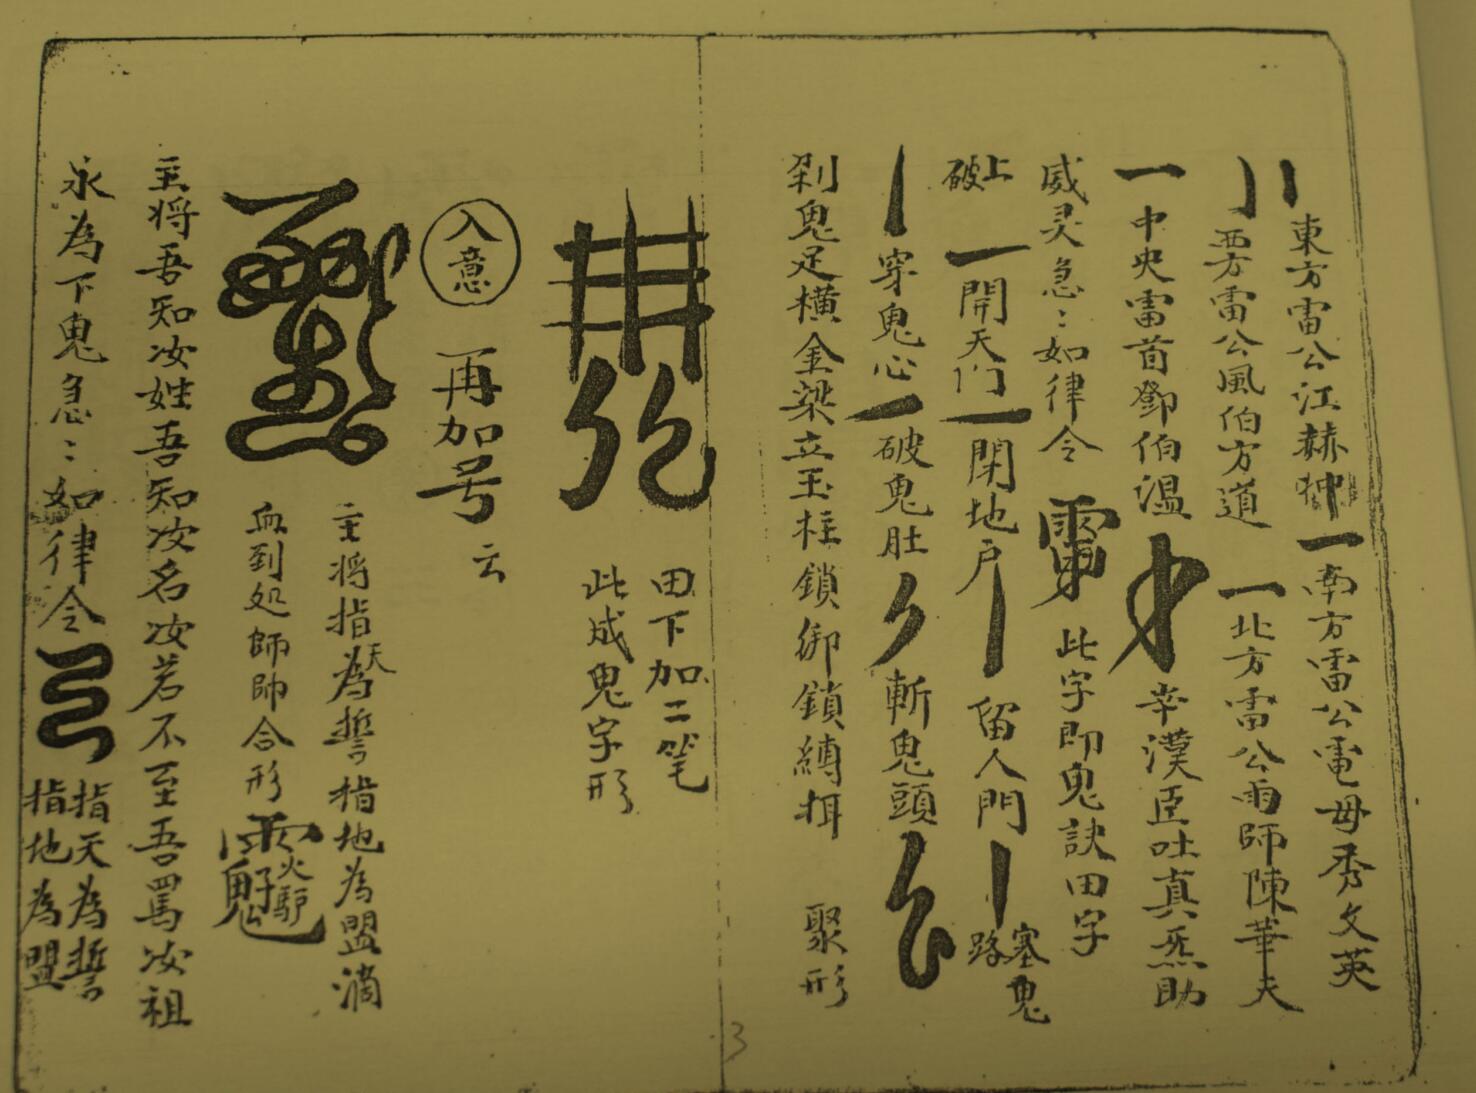 東方雷公江赫冲一南方雷公電母秀文英
西方雷公風伯方道一北方雷公雨師陳華夫
一中央雷首鄧伯温
辛漢臣吐真炁助
威灵急〻如律令
此字即鬼訣田字
上破一開天门一閉地户丨留人門丨塞鬼路
丨穿鬼心一破鬼肚
斬鬼頭
刹鬼足橫金梁立玉柱鎖御鎖縛 聚形
田下加二笔
此成鬼字形
入意 再加号 云
主将指天為誓指地為盟滴
血到处師帥合形
主将吾知汝姓吾知汝名汝若不至吾罵汝祖
永為下鬼急〻如律令
指天為誓
指地為盟
3